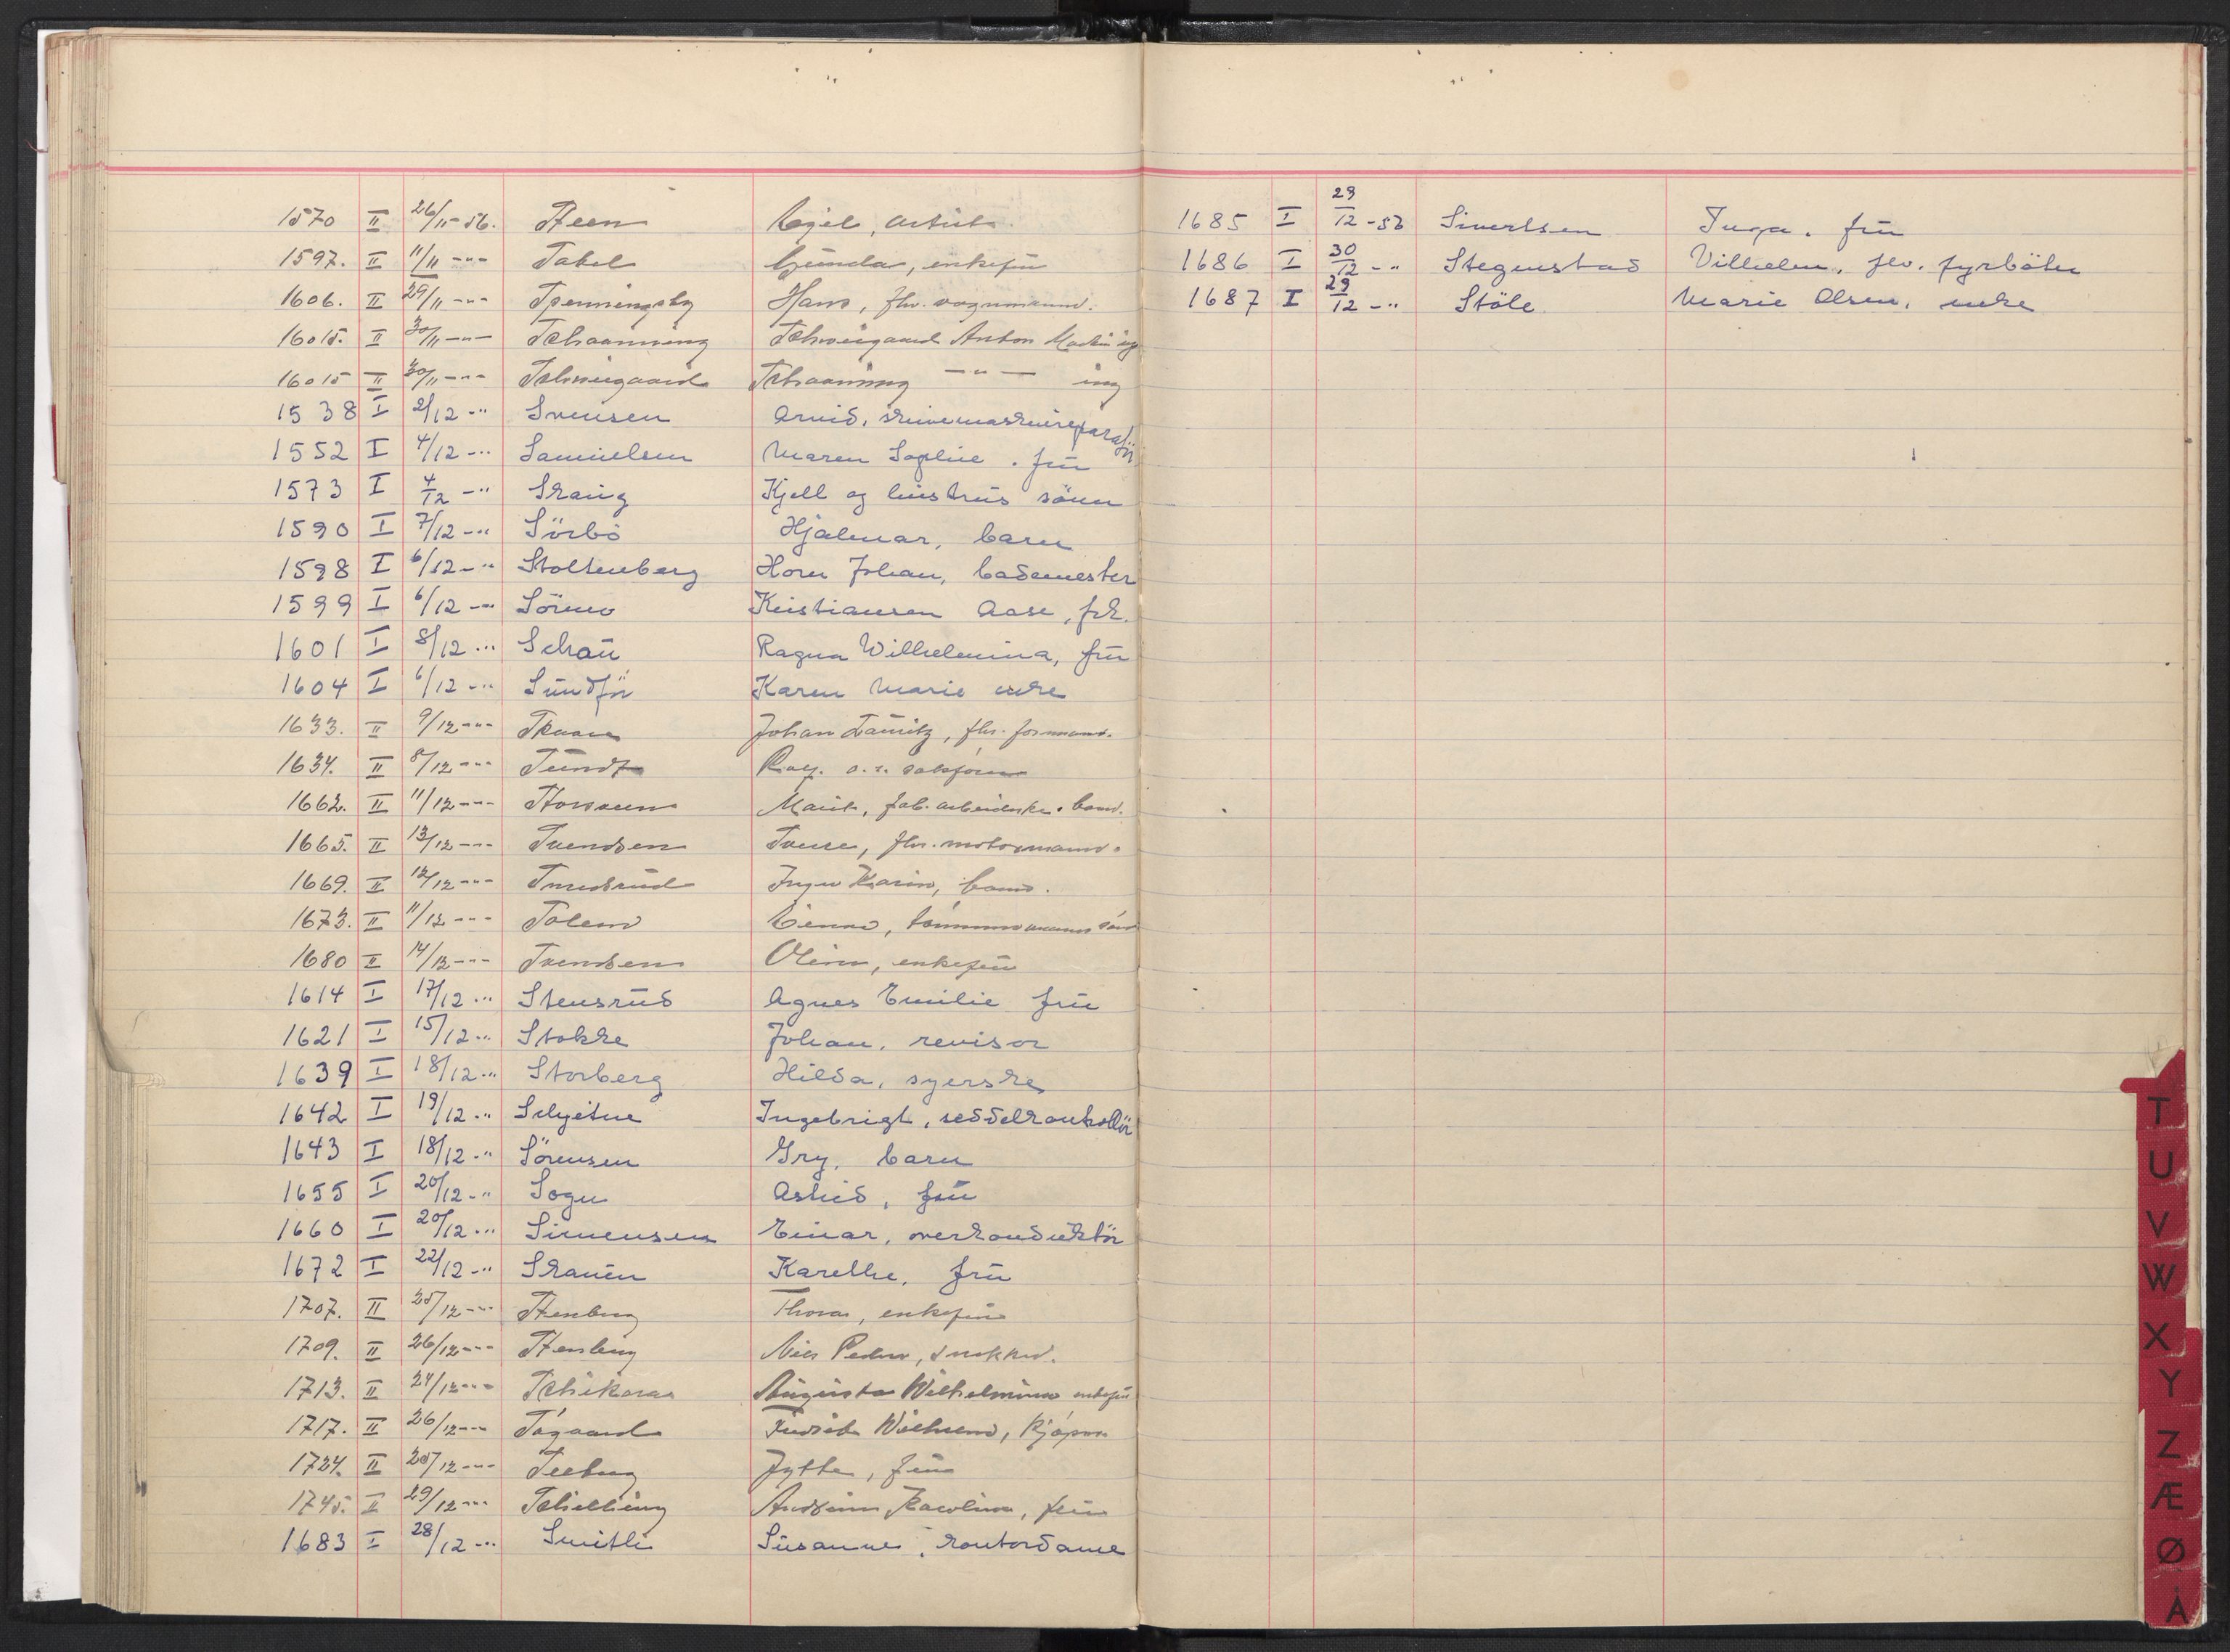 1570 II 26/11-56. Steen Egil, artist
1597. II 11/11 -"- Sabel Gunda, enkefrü
1606. II 29/11 -"- Spenningsby Hans, fhv. vognmann.
1605. II 30/11 -"- Schaanning Schweigaard Anton Martin ing
1605 II 30/11 -"- Schweigaard Schaanning -"- ing
1538 I 2/12 -" Svensen Arvid, skrivemaskinreparatör
1552 I 4/12 -" Samüelsen Maren Sophie. frü
1573 I 4/12 -" Skaüg Kjell og hüstrüs sönn
1590 I 7/12 -" Sörbö Hjalmar, barn
1598 I 6/12 -" Stoltenberg Horn Johan, bademester
1599 I 6/12 -" Sörmo Kristiansen Aase, frk.
1601 I 8/12 -" Schaü Ragna Wilhelmina, frü
1604 I 6/12 -" Sündför Karen Marie enke
1633. II 9/12 -"- Skaare Johan Lauritz, fhv. formann.
1634. II 8/12 -"- Sündt Rolf. o.r. sakförer
1662. II 11/12 -"- Storsveen Marit, fab. arbeiderske. barn.
1665. II 13/12 -"- Svendsen Sverre, fhv. motormann.
1669. II 12/12 -"- Smedsrüd Inger Karin, barn.
1673. II 11/12 -"- Solem tömmermanns sönn
1680 II 14/12 -"- Svendsen Oline, enkefrü
1614 I 17/12 -" Stensrüd Agnes Emilie frü
1621 I 15/12 -" Stokke Johan, revisor
1639 I 18/12 -" Storberg Hilda, syerske
1642 I 19/12 -" Selyeitne Ingebrigt, seddelkontrollör
1643 I 18/12 -" Sörensen Gry, barn
1655 I 20/12 -" Sogn Astrid, frü
1660 I 20/12 -" Simensen Einar, overkondüktör
1672 I 22/12 -" Skauen Karethe, frü
1707. II 25/12 -"- Stenberg Thora, enkefrü
1709. II 26/12 -"- Stenberg Nils Peder, snekker.
1713. II 24/12 -"- Augusta Wilhelmine enkefrü
1717. II 26/12 -"- Sögaard Fredrik Wilhelm, kjöpm
1724. II 25/12 -"- Seeberg Jytte, frü
1745. II 29/12 -"- Schilling Karoline, frü
1683 I 28/12 -" Smith Süsanne, kontordame
1685 I 29/12 -56 Sivertsen Inga. frü
1686 I 30/12 -" Stegenstad Vilhelm, fhv. fyrböter
1687 I 29/12 -" Stöle Marie Olsen, enke
T
U
V
W
X
Y
Z
Æ
Ø
Å